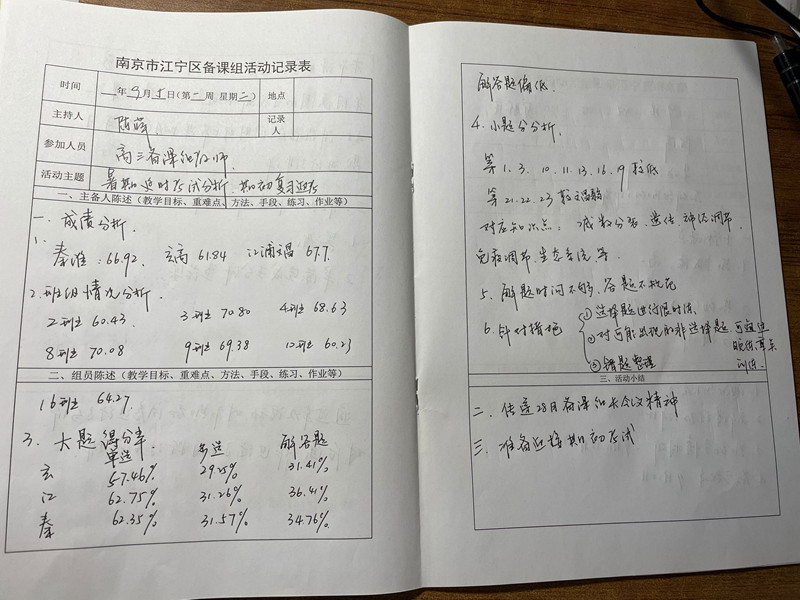 南京市江宁区备课组活动记录表
时间 年 9月1日(第一周 星期二) 地点
主持人 陈 记录人
参加人员 高三备课组教师
活动主题 暑期延时考试分析、期初复习迎考
一、主备人陈述(教学目标、重难点、方法、手段、练习、作业等)
一、成绩分析.
1.
秦淮:66.92. 玄高 61.84 江浦 67.7.
2.班级情况分析.
2班 60.43. 3班 70.80 4班 68.63
8班 70.08 9班 69.38 12班 60.23
二、组员陈述(教学目标、重难点、方法、手段、练习、作业等)
16班 64.27
3. 大题得分率.
单选 多选 解答题
玄 57.46% 29.25% 31.41%
江 62.75% 31.26% 36.41%
秦 62.35% 31.57% 34.76%
解答题偏低.
4. 小题分分析.
第1. 3. 10. 11. 13. 16. 19 较低
第21. 22. 23 较
对应知识点: 减数分裂、遗传、神经调节、
免疫调节、生态系统等.
5. 解题时间不够,答题不规范
6. 针对措施
①选择题进行限时练
②对可能出现的非选择题 可
训练.
③错题整理
三、活动小结
二、传达28日备课组长会议精神
三、准备迎接期初考试